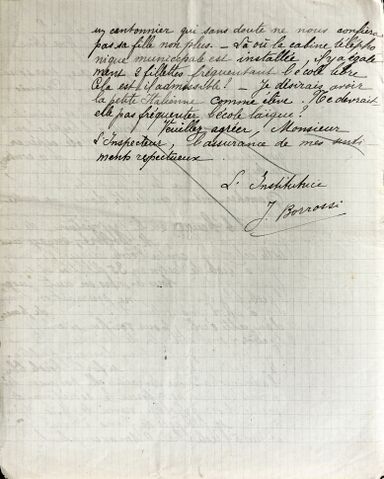 un cantonnier qui sans doute ne nous confiera
pas sa fille non plus. - Là où le cabine télépho
nique municipale est installée, il y a égale
ment 2 fillettes fréquentant l'école libre
Cela est-il admissible! - Je désirais avoir
la petite Italienne comme élève. Ne devrait
elle pas fréquenter l'école laïque?
Veuillez agréer, Monsieur
l'Inspecteur, l'assurance de mes senti-
ments respectueux
L'Institutrice
J. Borrossi